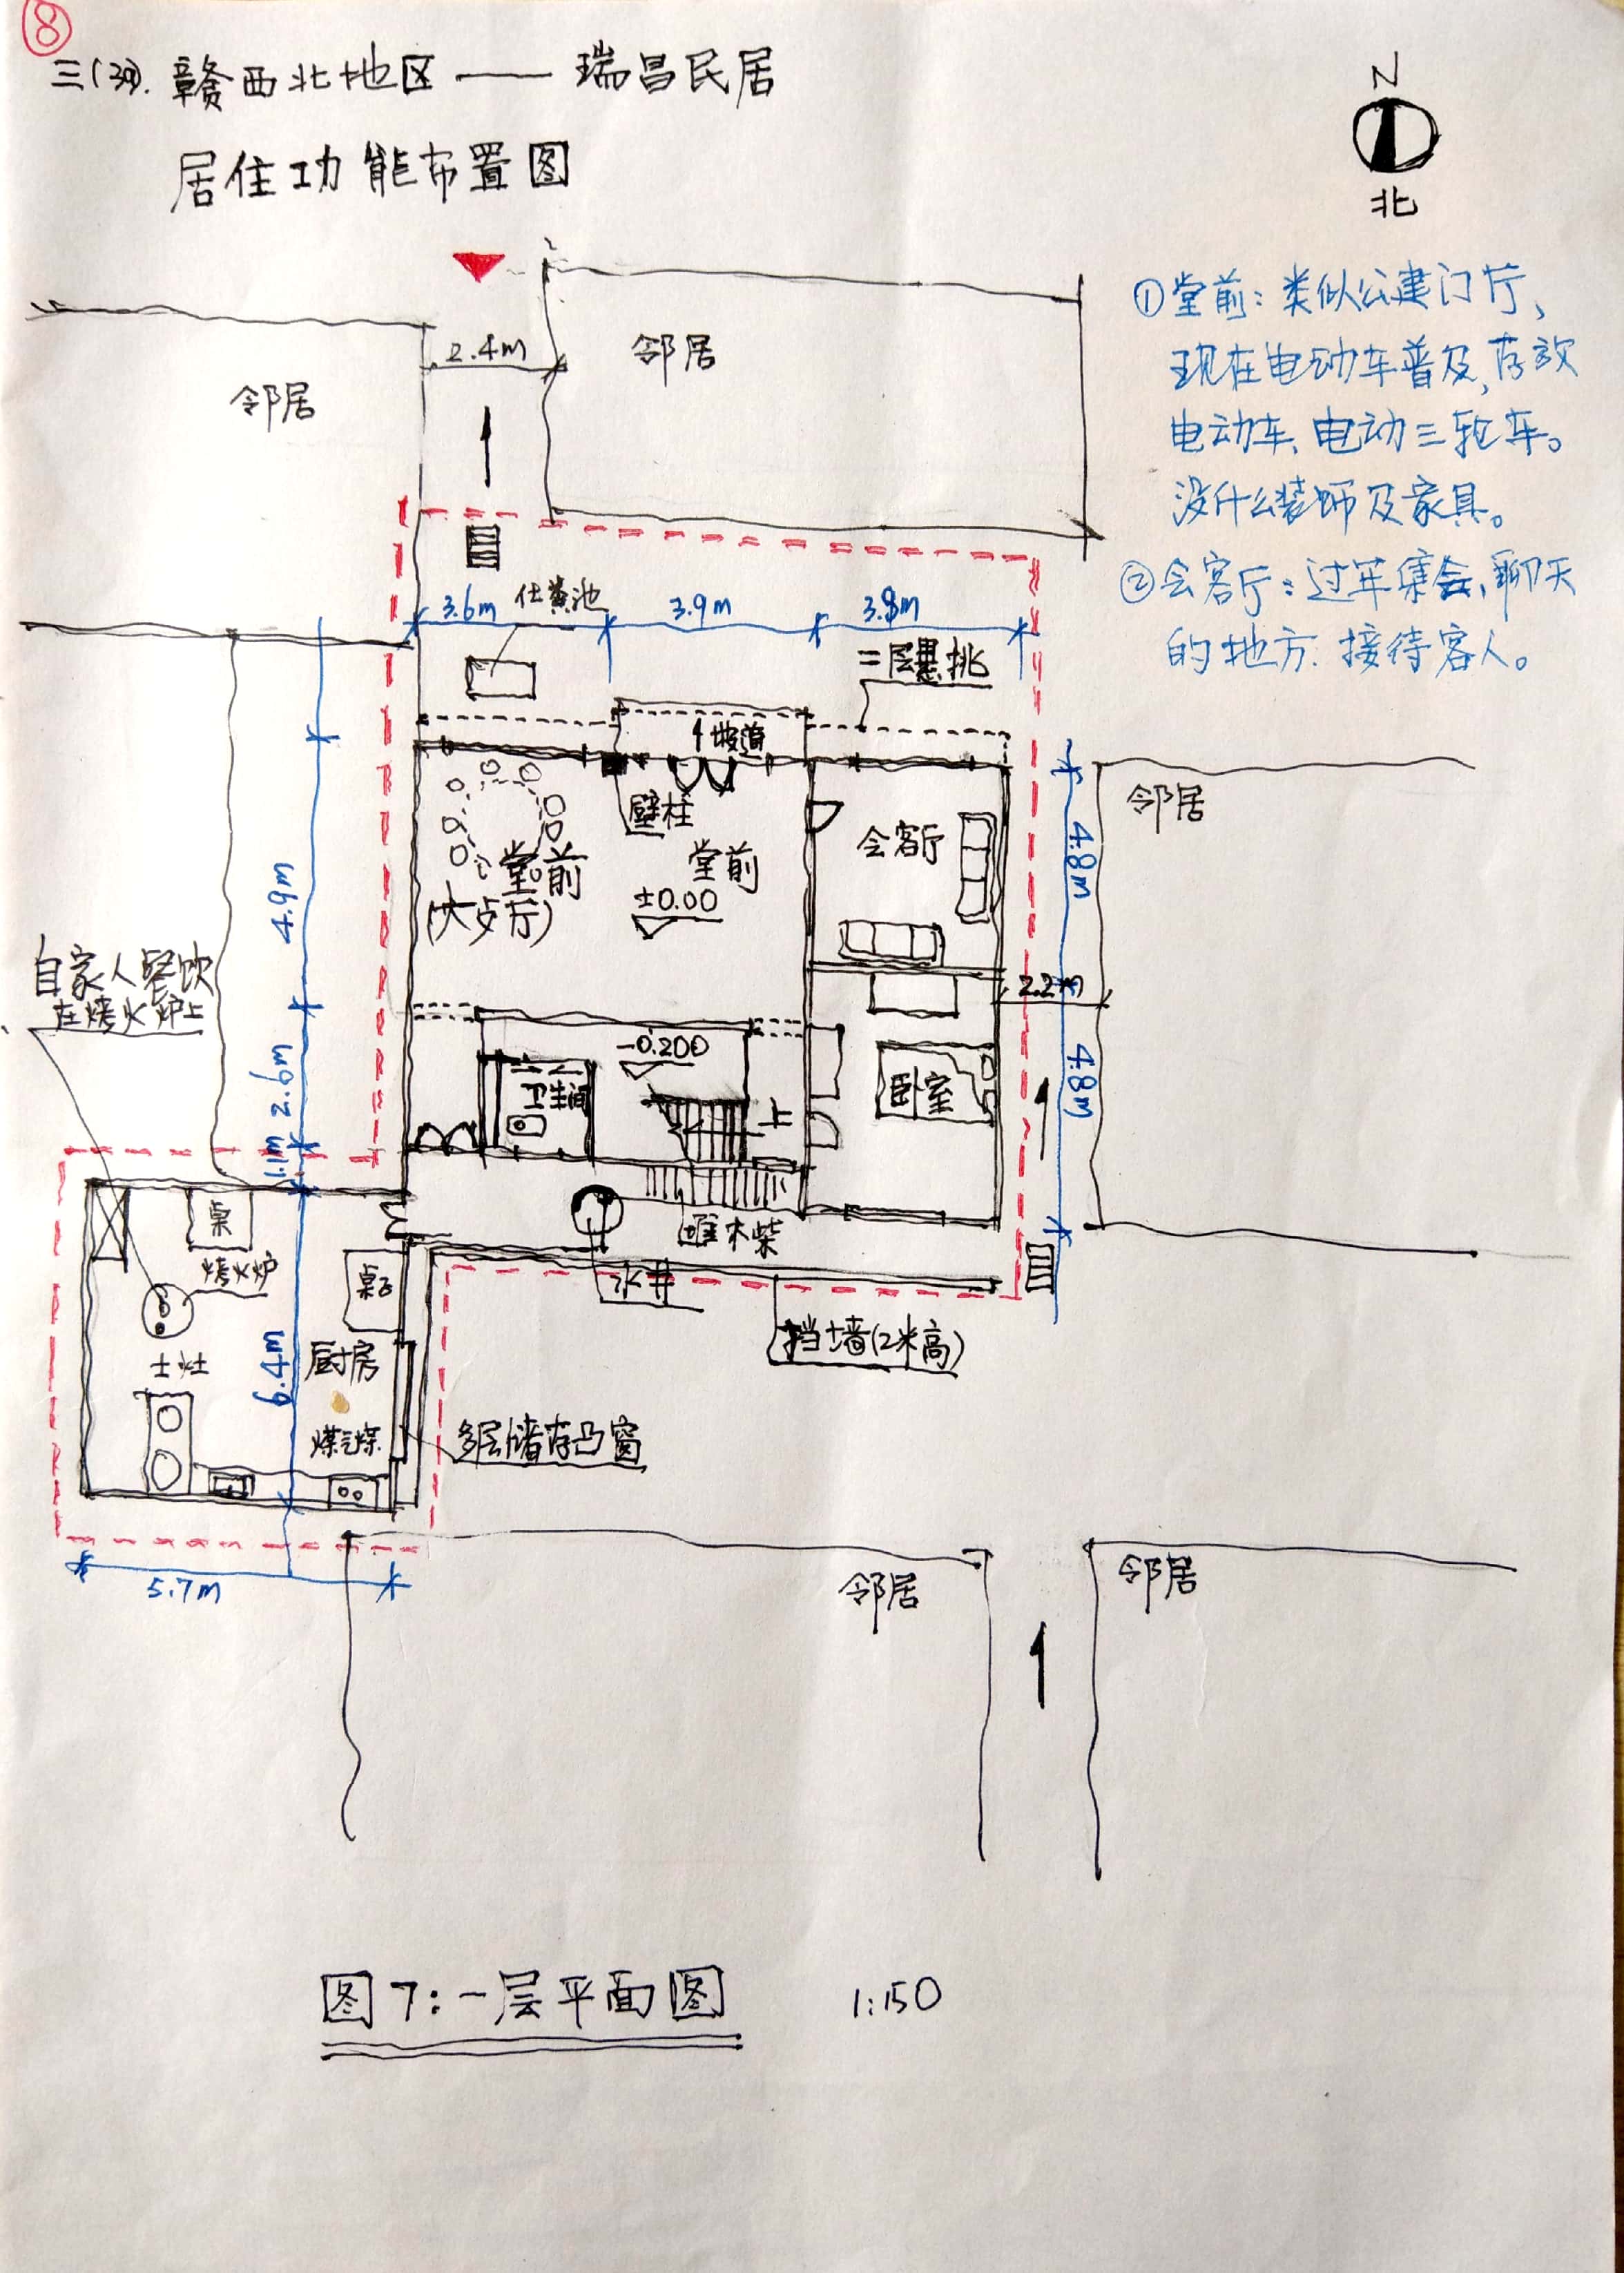 ⑧
三(3). 赣西北地区 —— 瑞昌民居
居住功能布置图
N
北
①堂前：类似公建门厅、
现在电动车普及,存放
电动车、电动三轮车。
没什么装饰及家具。
②会客厅：过年集会、聊天
的地方.接待客人。
2.4m
邻居
邻居
3.6m
化粪池
3.9m
3.8m
二层悬挑
坡道
壁柱
堂前
±0.00
堂前
(大步厅)
会客厅
邻居
4.8m
4.9m
自家人餐饮
在烤火炉上
2.2m
-0.200
卫生间
上
卧室
4.8m
2.6m
1.1m
桌
烤火炉
桌子
堆木柴
水井
挡土墙(2米高)
土灶
6.4m
厨房
煤气灶
多层储存凸窗
5.7m
邻居
邻居
图7:一层平面图
1:150